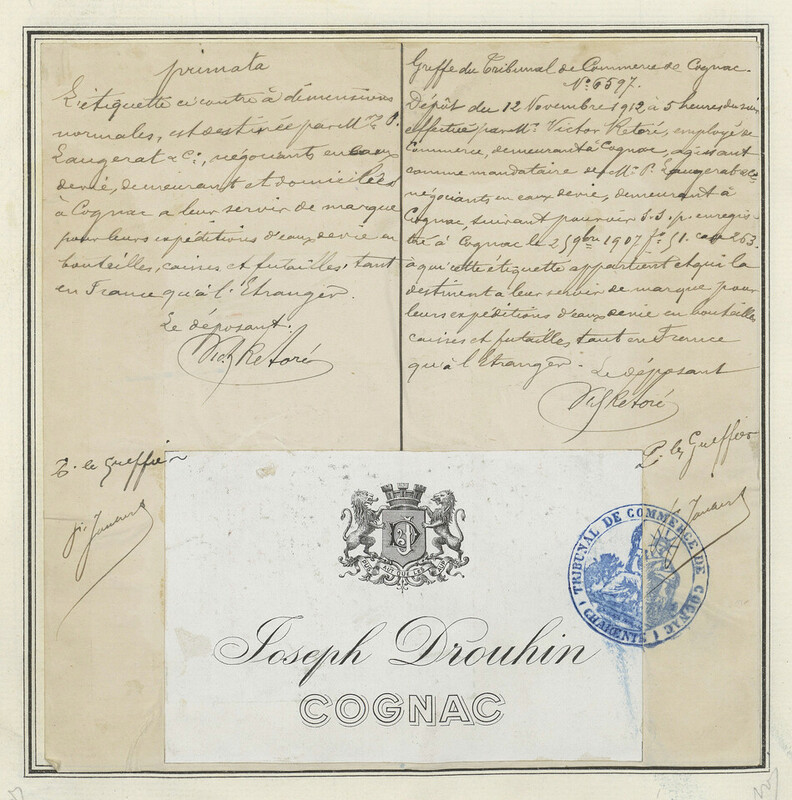 primata
L'étiquette ci contre à dimensions
normales, est destinée par Mrs P.
Laugerat & Cie, négociants en eaux
devie, demeurant et domiciliés
à Cognac a leur servir de marque
pour leurs expéditions d'eaux devie en
bouteilles, caisses et futailles, tant
en France qu'à l'Etranger.
Le déposant.
Vict Retoré
P. le Greffier
Greffe du Tribunal de Commerce de Cognac.
No 6597.
Dépôt du 12 Novembre 1912, à 5 heures du soir
effectué par Mr Victor Retoré, employé de
Commerce, demeurant à Cognac, agissant
comme mandataire de Mrs P. Laugerat & Cie
négociants en eaux devie, demeurant à
Cognac suivant pouvoir s.s.p. enregis-
tré à Cognac le 25 9bre 1907 fo 51. case 263.
à qui cette étiquette appartient et qui la
destinent a leur servir de marque pour
leurs expéditions d'eaux devie en bouteilles
caisses et futailles tant en France
qu'à l'Etranger. Le déposant
Vict Retoré
P. le Greffier
JD
Joseph Drouhin
COGNAC
TRIBUNAL DE COMMERCE DE COGNAC
(CHARENTE)